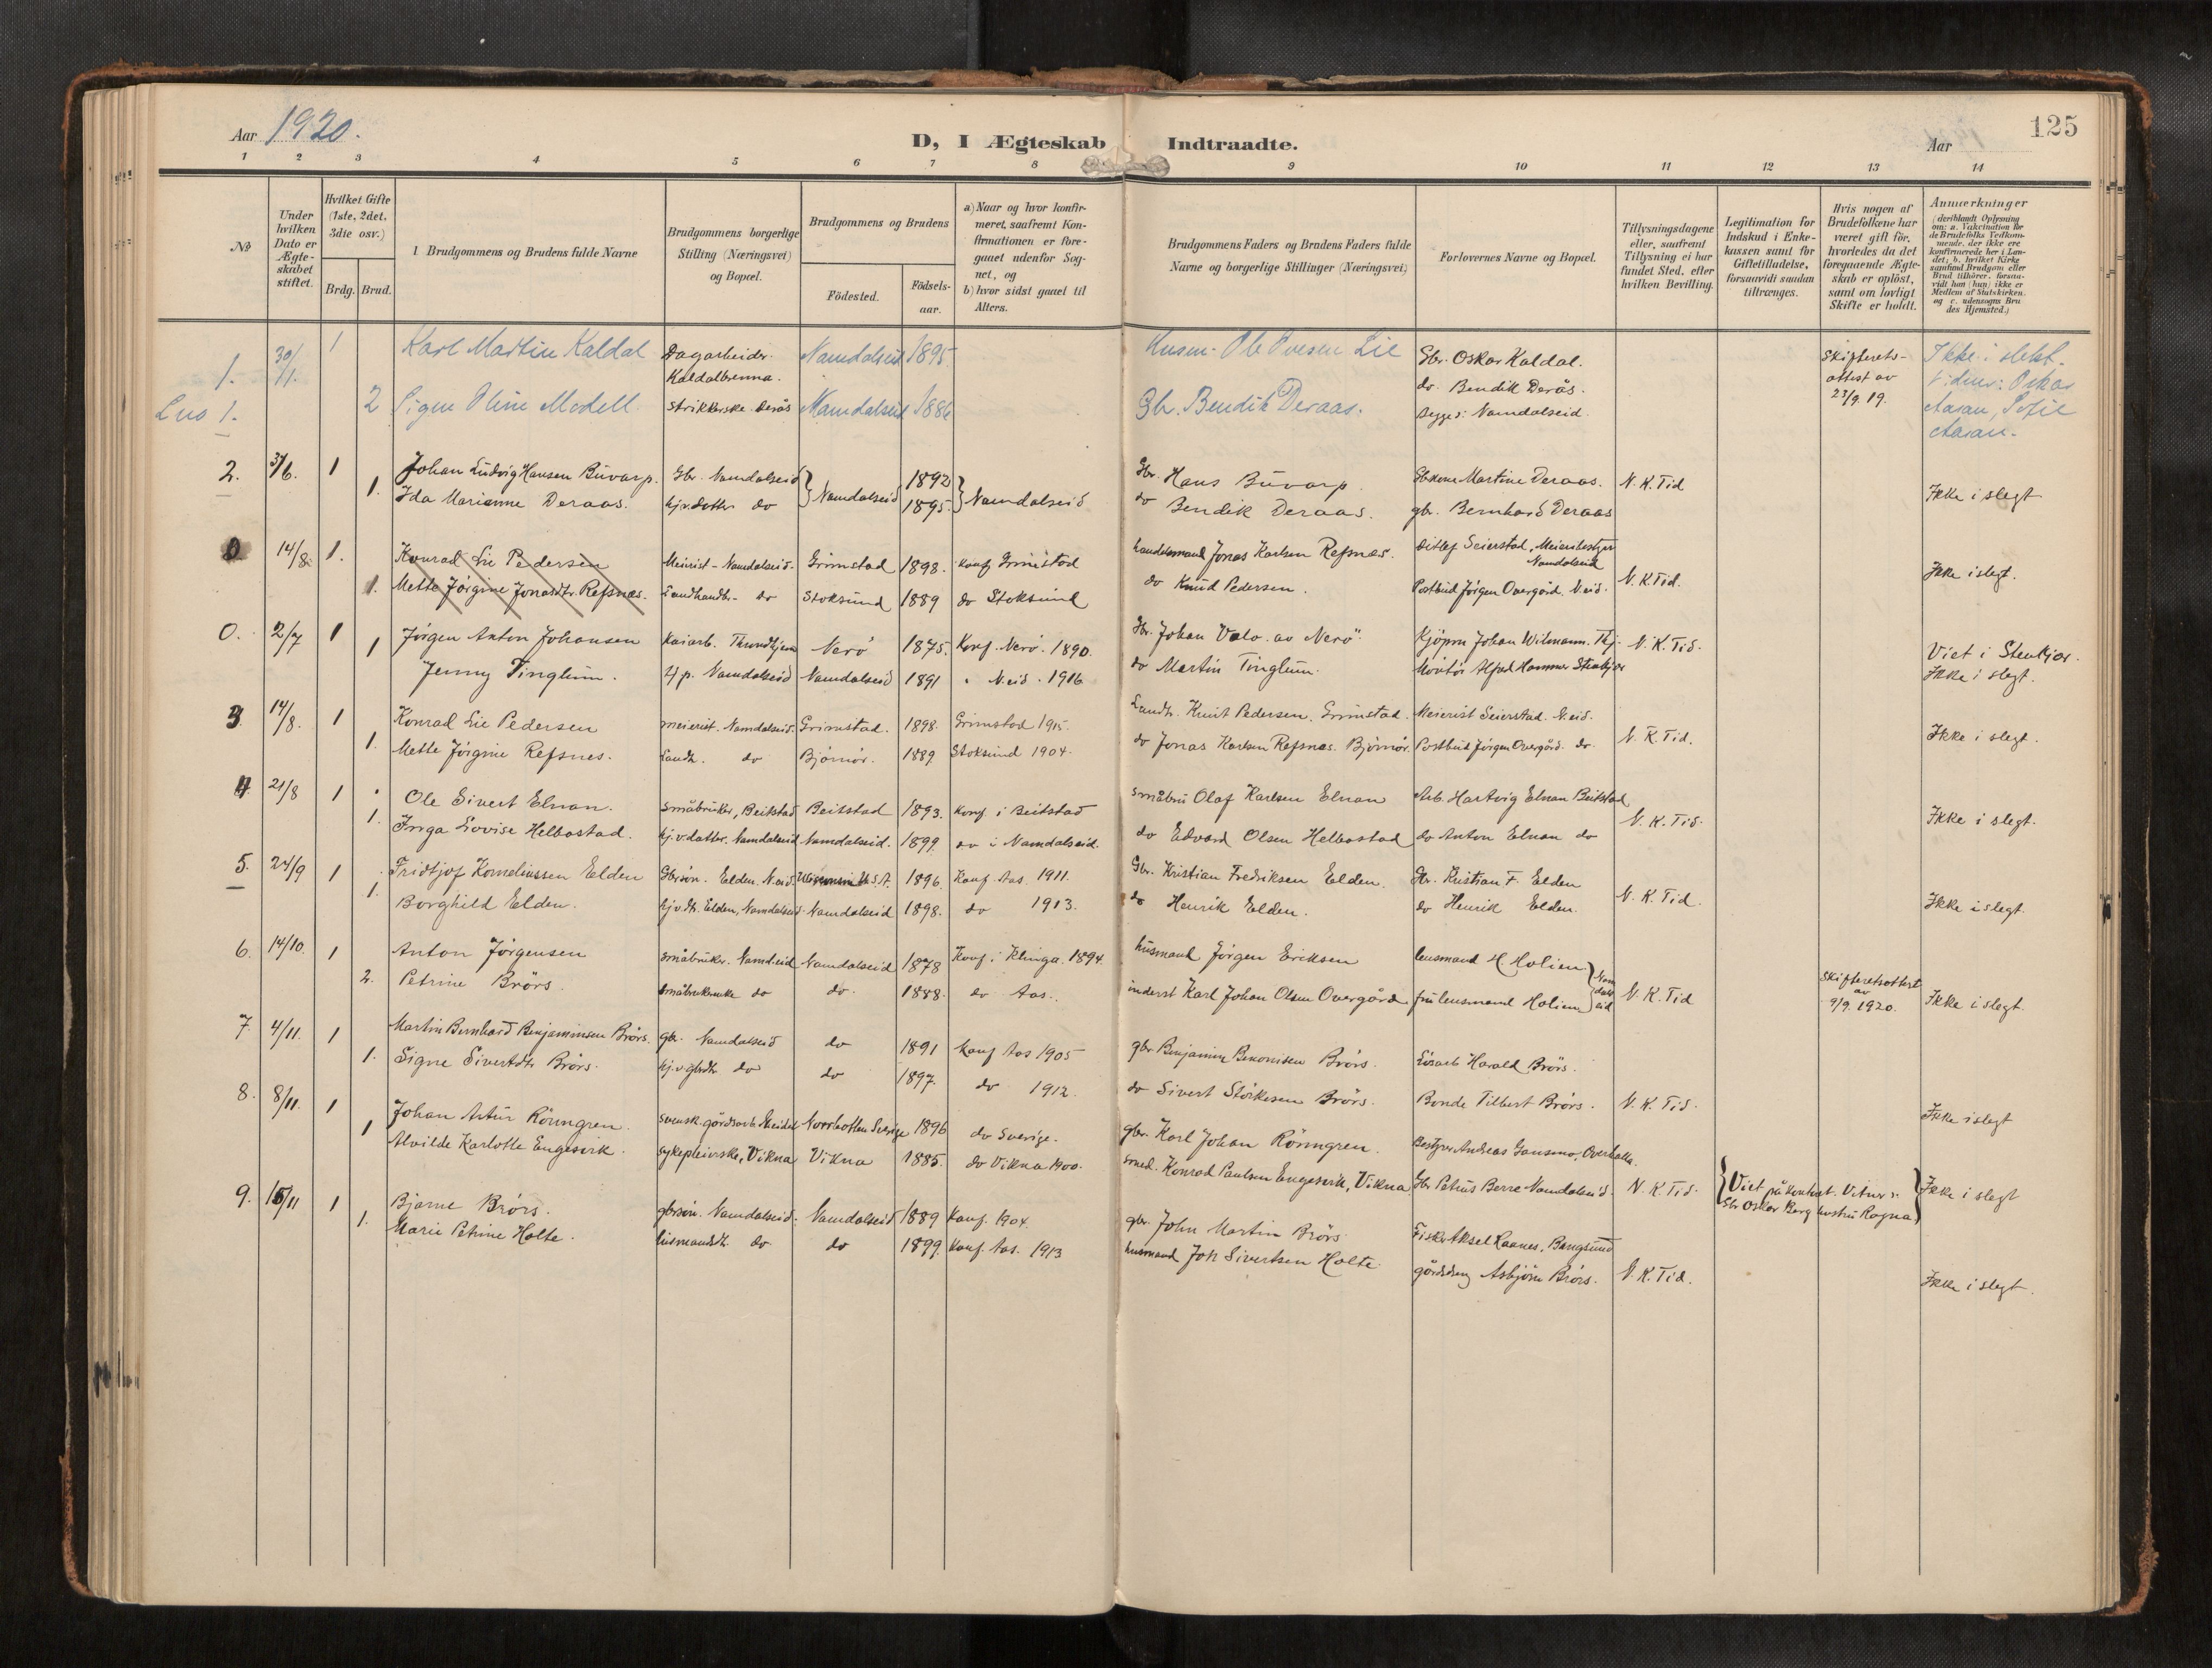 Aar 1920.
D, I Ægteskab Indtraadte.
Aar
125
1 2 3 4 5 6 7 8 9 10 11 12 13 14
No
Under hvilken Dato er Ægteskabet stiftet.
Hvilket Gifte (1ste, 2det, 3die osv.)
Brdg. Brud.
1 Brudgommens og Brudens fulde Navne
Brudgommens borgerlige Stilling (Næringsvei) og Bopæl.
Brudgommens og Brudens
Födested.
Födselsaar.
a) Naar og hvor konfirmeret, saafremt Konfirmationen er foregaaet udenfor Sognet, og
b) hvor sidst gaaet til Alters.
Brudgommens Faders og Brudens Faders fulde Navne og borgerlige Stillinger (Næringsvei)
Forlovernes Navne og Bopæl.
Tillysningsdagene eller, saafremt Tillysning ei har fundet Sted, efter hvilken Bevilling.
Legitimation for Indskud i Enkekassen samt för Giftetilladelse, forsaavidt saadan tiltrænges.
Hvis nogen af Brudefolkene har været gift för, hvorledes da det foregaaende Ægteskab er oplöst, samt om lovligt Skifte er holdt.
Anmærkninger (deriblandt Oplysning om: a. Vakcination för de Brudefolks Vedkommende, der ikke ere konfirmerede her i Landet; b. hvilket Kirkesamfund Brudgom eller Brud tilhörer, forsaavidt han (hun) ikke er Medlem af Statskirken. og c. udensogns Brudes Hjemsted.)
1. 30/1 1 Karl Martin Kaldal Dagarbeider. Kaldalbrenna. Namdalseid 1895 Husm. Ole Ivesen Lie Gbr. Oskar Kaldal. Skifteretsattest av 23/9.19. Ikke i slekt.
2 Signe Oline Modell Strikkerske Derås Namdalseid 1886 Gbr. Bendik Deraas. do. Bendik Derås. begge: Namdalseid Oskar Aasan, Sofie Aasan.
2. 3/6. 1 Johan Ludvig Hansen Buvarp. Gbr. Namdalseid } Namdalseid 1892 } Namdalseid Gbr. Hans Buvarp. Gbkone Martine Deraas. N. K. Tid
1. Ida Marianne Deraas. hj.v.datter do 1895 do Bendik Deraas. gbr. Bernhard Deraas Ikke i slegt
14/8. 1. Konrad Lie Pedersen Meierist - Namdalseid - Grimstad 1898. konf Grimstad handelsmand Jonas Karlsen Refsnes. Ditlef Seierstad, Meieribestyrer Namdalseid
1. Mette Jörgine Jonasdtr. Refsnes. Landhandler - do Stoksund 1889 do Stoksund do Knud Pedersen. Postbud Jörgen Overgård. N.eid. N. K. Tid. Ikke i slegt.
0. 2/7 1 Jörgen Anton Johansen Kaiarb. Throndhjem Nerö 1875. Konf. Nerö. 1890. Gbr. Johan Valö. av Nerö. Kjöpm Johan Wikmann. Thj. N. K. Tid. Viet i Stenkjær.
1 Jenny Tinglum. Hj. p. Namdalseid Namdalseid 1891 " N.eid. 1916 do Martin Tinglum. Montör Alfred Hammer Stenkjær Ikke i slegt.
3. 14/8. 1 Konrad Lie Pedersen meierist. Namdalseid. Grimstad. 1898. Grimstad 1915. Landh. Knut Pedersen. Grimstad. Meierist Seierstad. N.eid.
1. Mette Jörgine Refsnes. Landh. do Björnör. 1889. Stoksund 1904. do Jonas Karlsen Refsnes. Björnör. Postbud Jörgen Overgård. do. N. K. Tid. Ikke i slegt.
4. 21/8 1 Ole Sivert Elnan. Småbruker, Beitstad Beitstad 1893. Konf i Beitstad småbru Olaf Karlsen Elnan Arb. Hartvig Elnan Beitstad
1. Inga Lovise Helbostad. hj.v.datter. Namdalseid Namdalseid. 1899. do i Namdalseid. do Edvard Olsen Helbostad do Anton Elnan do N. K. Tid. Ikke i slegt.
5. 24/9 1 Fridtjof Korneliussen Elden Gbrsön. Elden. N.eid. Wisconsin U.S.A. 1896. Konf. Aas. 1911. Gbr. Kristian Fredriksen Elden. Gbr. Kristian F. Elden
1. Borghild Elden. hj.v.dtr. Elden, Namdalseid Namdalseid 1898. do 1913. do Henrik Elden. do Henrik Elden. N. K. Tid. Ikke i slegt.
6. 14/10. 1 Anton Jörgensen småbruker. Namd.eid Namdalseid 1878 Konf. i Klinga. 1894. husmand Jörgen Eriksen lensmand H. Holien } Namdalseid Skifteretsattest av 9/9. 1920.
2. Petrine Brörs. do do. 1888. do Aas. inderst Karl Johan Olsen Overgård fru lensmand Holien N. K. Tid Ikke i slegt.
7. 4/11. 1 Martin Bernhard Benjaminsen Brörs. gbr. Namdalseid do 1891 konf Aas 1905 gbr. Benjamin Benonisen Brörs. Lösarb Harald Brörs.
1. Signe Sivertdtr Brörs. hj.v.gbrdtr do do 1897. do 1912. do Sivert Störkesen Brörs. Bonde Tilbert Brörs. N. K. Tid. Ikke i slegt
8. 8/11. 1 Johan Artur Rönngren. svensk. gårdsarb. Norrbotten Sverige 1896 do Sverige. gbr. Karl Johan Rönngren. Bestyrer Andreas Gansmo, Overhalla.
1 Alvilde Karlotte Engesvik. sykepleierske, Vikna Vikna 1885. do Vikna 1900. smed. Konrad Paulsen Engesvik, Vikna Gbr Petrus Berre Namdalseid. N. K. Tid. { Viet på kontoret. Gbr Oskar Berg hustru Ragna } Ikke i slegt
9. 15/11 1 Bjarne Brörs. gbrsön. Namdalseid. Namdalseid 1889 Konf. 1904. gbr. John Martin Brörs Fisker Aksel Raanes, Bangsund
1. Marie Petrine Holte. husmandsdtr do do 1899 Konf. Aas. 1913 husmand Joh Sivertsen Holte gårdsdreng Asbjörn Brörs. N. K. Tid. Ikke i slegt.